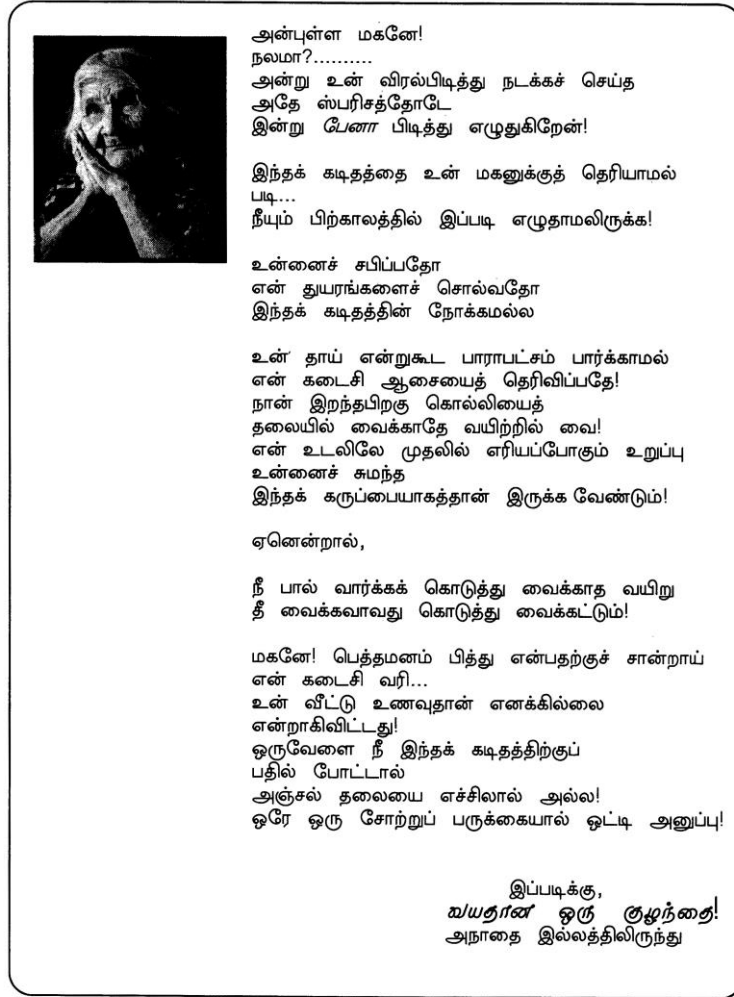 அன்புள்ள மகனே!
நலமா?..........
அன்று உன் விரல்பிடித்து நடக்கச் செய்த
அதே ஸ்பரிசத்தோடே
இன்று பேனா பிடித்து எழுதுகிறேன்!
இந்தக் கடிதத்தை உன் மகனுக்குத் தெரியாமல்
படி...
நீயும் பிற்காலத்தில் இப்படி எழுதாமலிருக்க!
உன்னைச் சபிப்பதோ
என் துயரங்களைச் சொல்வதோ
இந்தக் கடிதத்தின் நோக்கமல்ல
உன் தாய் என்றுகூட பாராபட்சம் பார்க்காமல்
என் கடைசி ஆசையைத் தெரிவிப்பதே!
நான் இறந்தபிறகு கொல்லியைத்
தலையில் வைக்காதே வயிற்றில் வை!
என் உடலிலே முதலில் எரியப்போகும் உறுப்பு
உன்னைச் சுமந்த
இந்தக் கருப்பையாகத்தான் இருக்க வேண்டும்!
ஏனென்றால்,
நீ பால் வார்க்கக் கொடுத்து வைக்காத வயிறு
தீ வைக்கவாவது கொடுத்து வைக்கட்டும்!
மகனே! பெத்தமனம் பித்து என்பதற்குச் சான்றாய்
என் கடைசி வரி...
உன் வீட்டு உணவுதான் எனக்கில்லை
என்றாகிவிட்டது!
ஒருவேளை நீ இந்தக் கடிதத்திற்குப்
பதில் போட்டால்
அஞ்சல் தலையை எச்சிலால் அல்ல!
ஒரே ஒரு சோற்றுப் பருக்கையால் ஒட்டி அனுப்பு!
இப்படிக்கு,
வயதான ஒரு குழந்தை!
அநாதை இல்லத்திலிருந்து